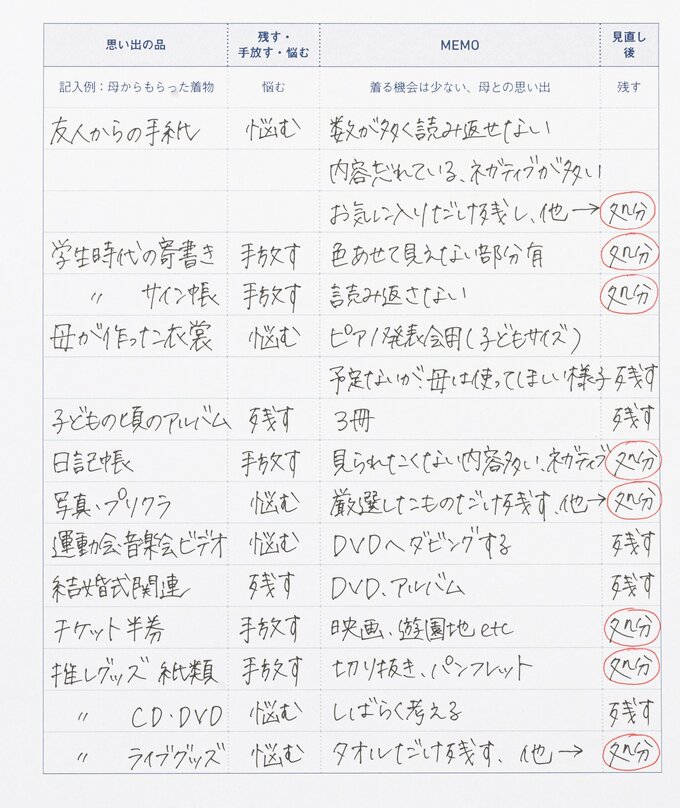 思い出の品 残す・手放す・悩む MEMO 見直し後
記入例：母からもらった着物 悩む 着る機会は少ない、母との思い出 残す
友人からの手紙 悩む 数が多く読み返せない
内容忘れている、ネガティブが多い
お気に入りだけ残し、他→ 処分
学生時代の寄書き 手放す 色あせて見えない部分有 処分
〃 サイン帳 手放す 読み返さない 処分
母が作った衣裳 悩む ピアノ発表会用(子どもサイズ)
予定ないが、母は使ってほしい様子 残す
子どもの頃のアルバム 残す 3冊 残す
日記帳 手放す 見られたくない内容多い、ネガティブ 処分
写真・プリクラ 悩む 厳選したものだけ残す、他→ 処分
運動会・音楽会ビデオ 悩む DVDへダビングする 残す
結婚式関連 残す DVD、アルバム 残す
チケット半券 手放す 映画、遊園地etc 処分
推しグッズ 紙類 手放す 切り抜き、パンフレット 処分
〃 CD・DVD 悩む しばらく考える 残す
〃 ライブグッズ 悩む タオルだけ残す、他→ 処分